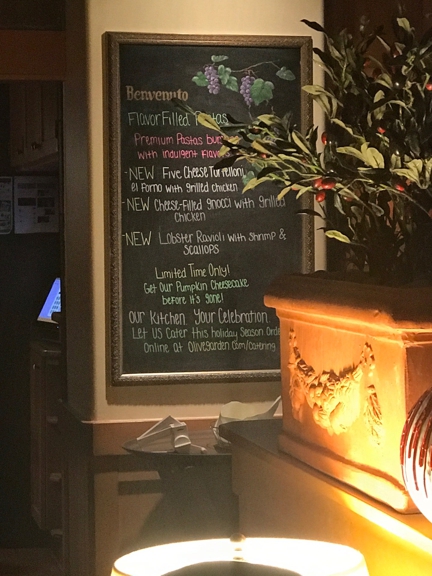 Benvenuto
Flavor Filled Pastas
Premium Pastas
with indulgent
-NEW Five Cheese Tortelloni
al Forno with grilled chicken
-NEW Cheese-Filled gnocci with grilled
Chicken
-NEW Lobster Ravioli with Shrimp &
Scallops
Limited Time Only!
Get Our Pumpkin Cheesecake
before it's gone!
Our Kitchen Your Celebration
Let US Cater this holiday Season
Online at Olivegarden.com/catering